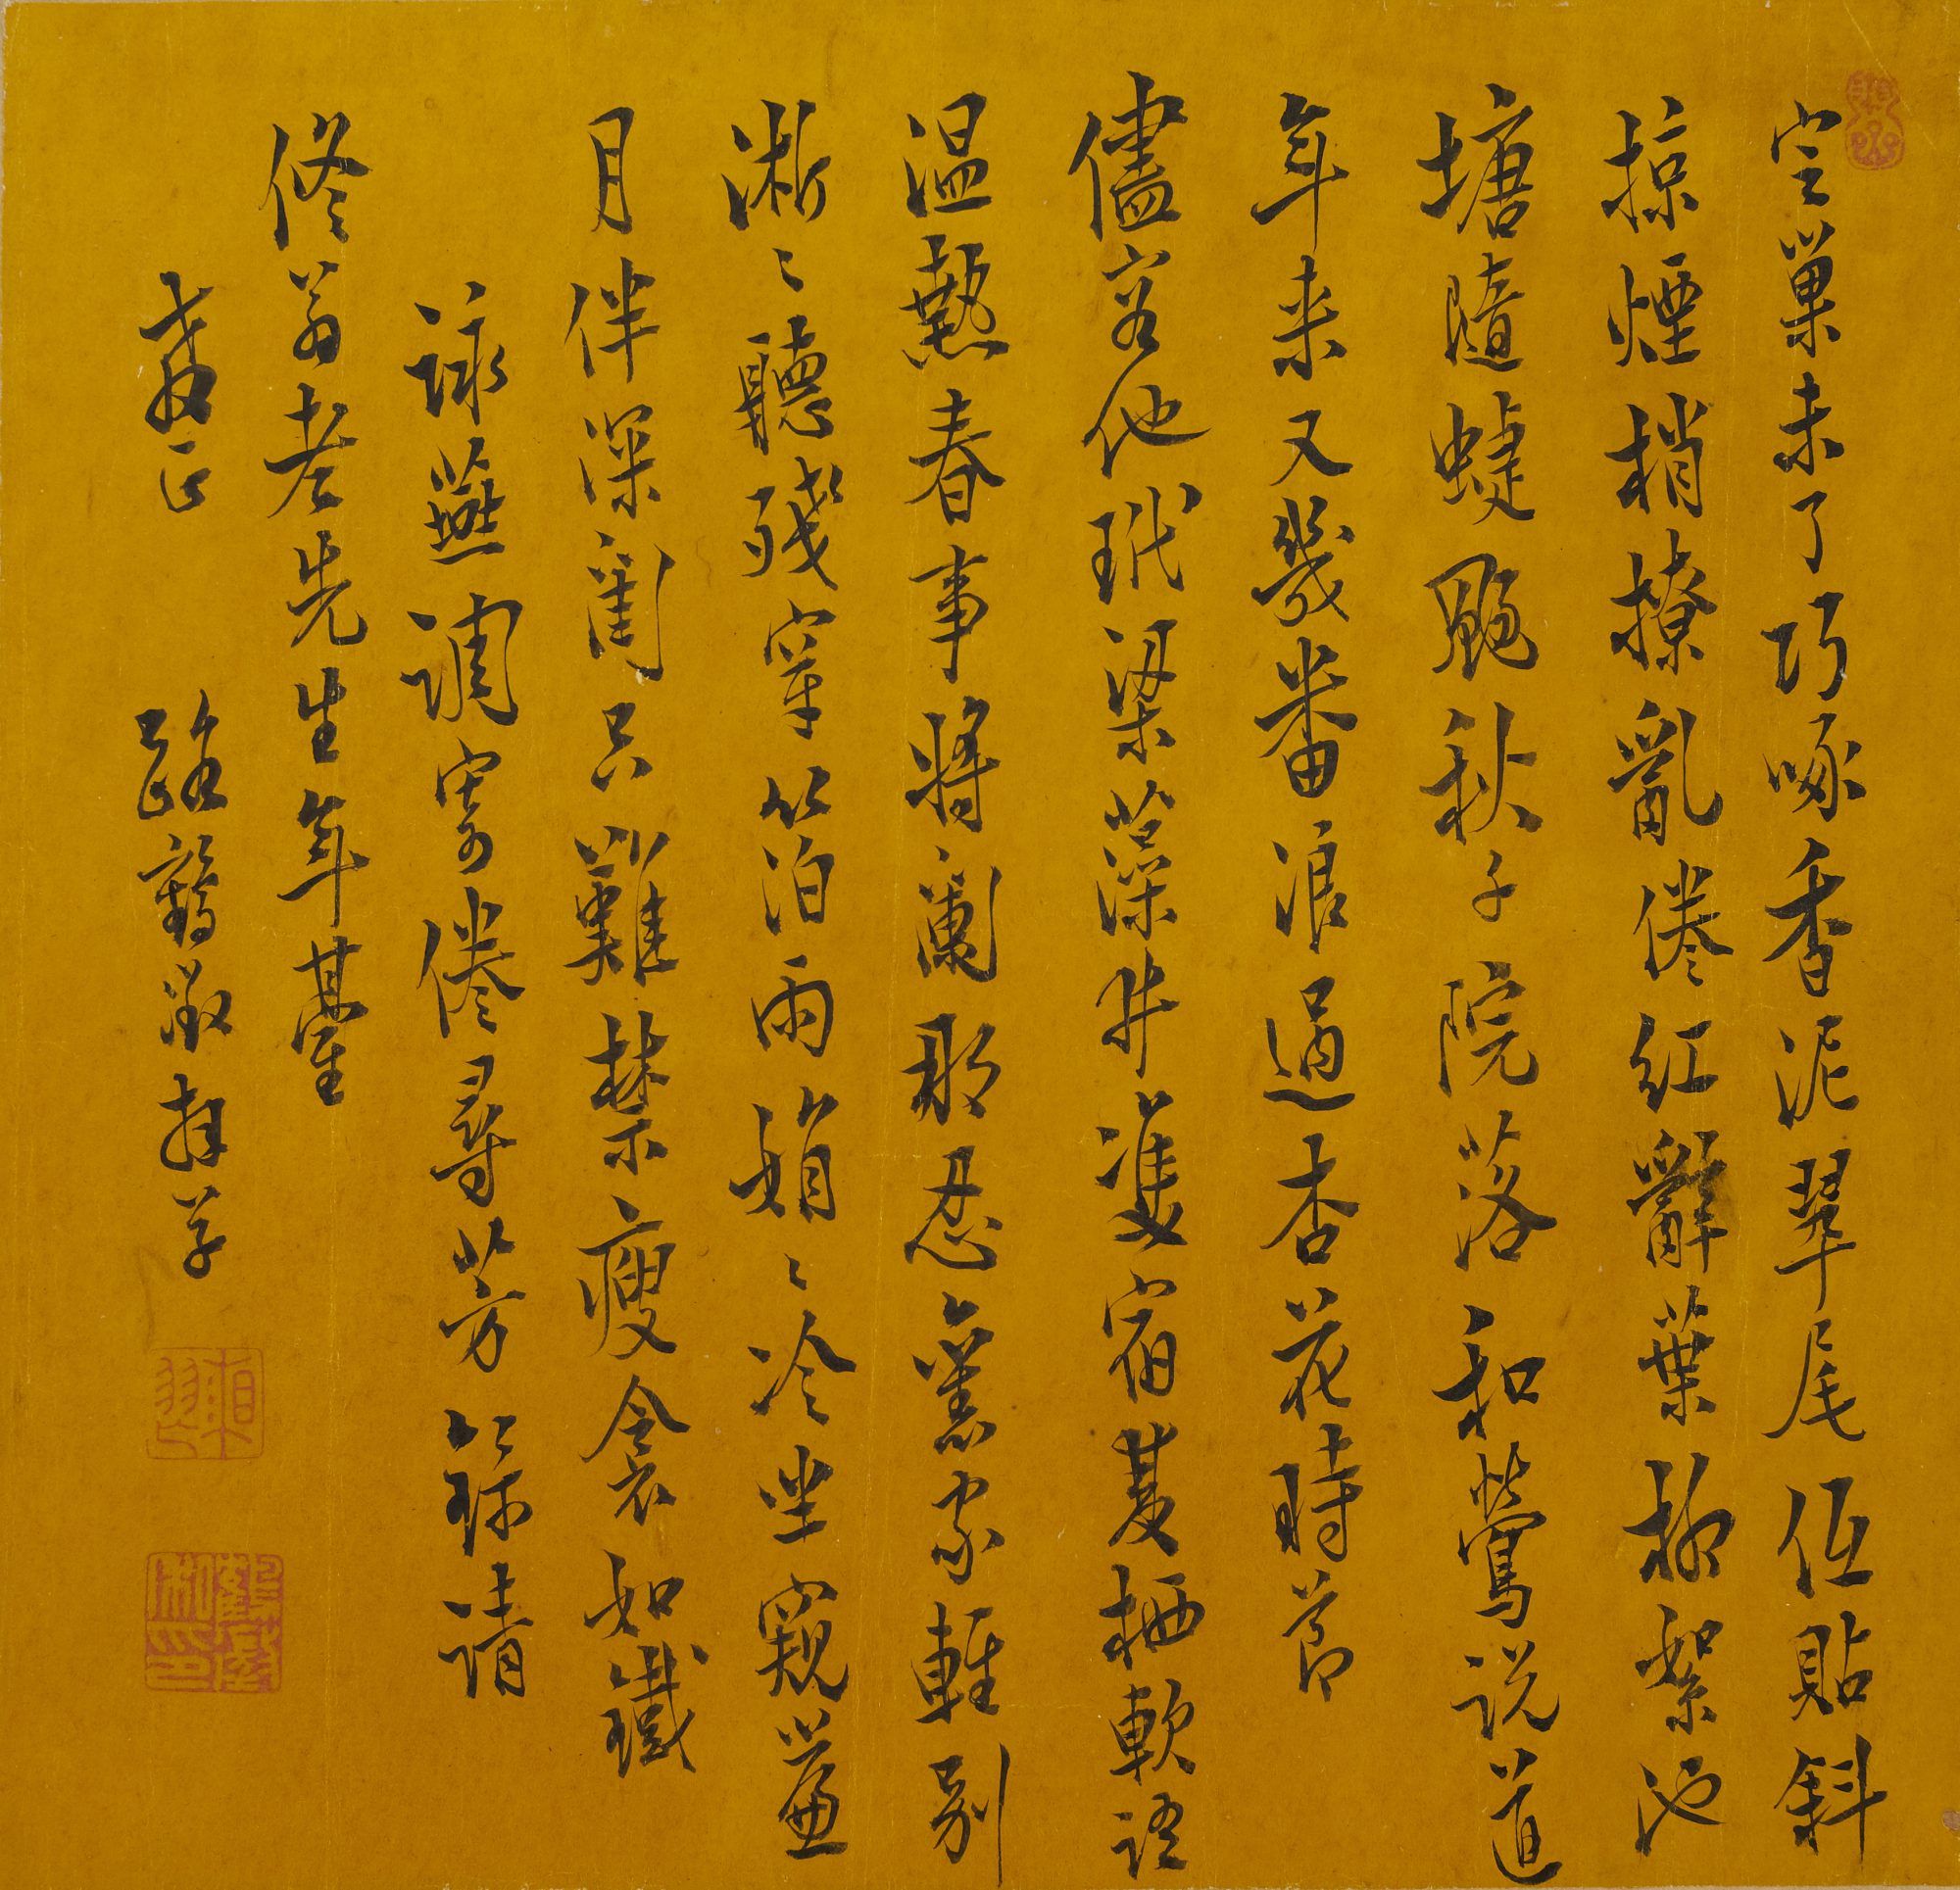 定巢未了巧啄香泥翠尾低貼斜
掠煙梢撩亂倦紅辭葉柳絮池
塘隨蜨颺秋千院落和鶯說道
年來又幾番浪過杏花時節
儘容他玳梁藻井雙宿雙栖軟語
溫熱春事將闌那忍舊家輕別
淅〻聽殘穿箔雨娟〻冷坐窺簾
月伴深閨只難禁瘦衾如鐵
詠燕調寄倦尋芳錄請
修翁老先生年甚
教正　路鶴徵拜草